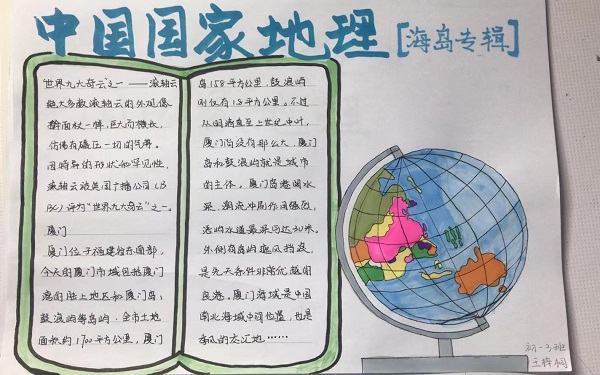 中国国家地理[海岛专辑]
"世界九大奇云"之一 —— 滚轴云
绝大多数滚轴云的外观像
擀面杖一样,巨大而横长,
仿佛有碾压一切的气势。
因特异的形状和罕见性,
滚轴云被英国广播公司(B
BC)评为"世界九大奇云"之一。
厦门
厦门位于福建省东南部,
今天的厦门市城包括厦门
湾的陆上地区和厦门岛,
鼓浪屿等岛屿,全市土地
面积约1700平方公里,厦门
岛158平方公里,鼓浪屿
则仅有1.8平方公里。不过
从明清直至上世纪中叶,
厦门尚没有那么大,厦门
岛和鼓浪屿就是城市
的主体。厦门岛港阔水
深,潮流冲刷作用强烈,
港内水道最深可达30米。
外侧有岛屿避风挡浪,
是先天条件非常优越的
良港。厦门海域是中国
南北海域中间位置,也是
的交汇地……
初一3班
王梓桐